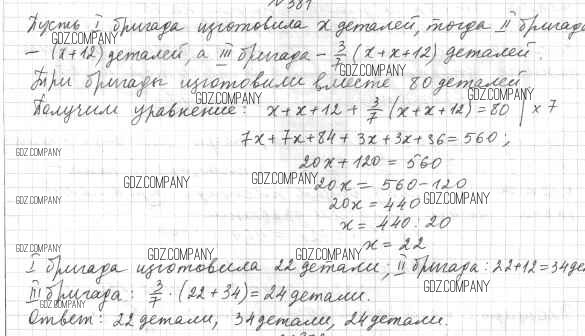 № 381
Пусть I бригада изготовила x деталей, тогда II бригада
– (x+12) деталей, а III бригада – 3/7 (x+x+12) деталей.
Три бригады изготовили вместе 80 деталей
Получим уравнение: x+x+12+ 3/7 (x+x+12)=80 | x 7
7x+7x+84+3x+3x+36=560;
20x+120=560
20x=560-120
20x=440
x=440:20
x=22
I бригада изготовила 22 детали; II бригада: 22+12=34 дет
III бригада: 3/7 · (22+34)=24 детали.
Ответ: 22 детали, 34 детали, 24 детали.
GDZ.COMPANY
GDZ.COMPANY
GDZ.COMPANY
GDZ.COMPANY
GDZ.COMPANY
GDZ.COMPANY
GDZ.COMPANY
GDZ.COMPANY
GDZ.COMPANY
GDZ.COMPANY
GDZ.COMPANY
GDZ.COMPANY
GDZ.COMPANY
GDZ.COMPANY